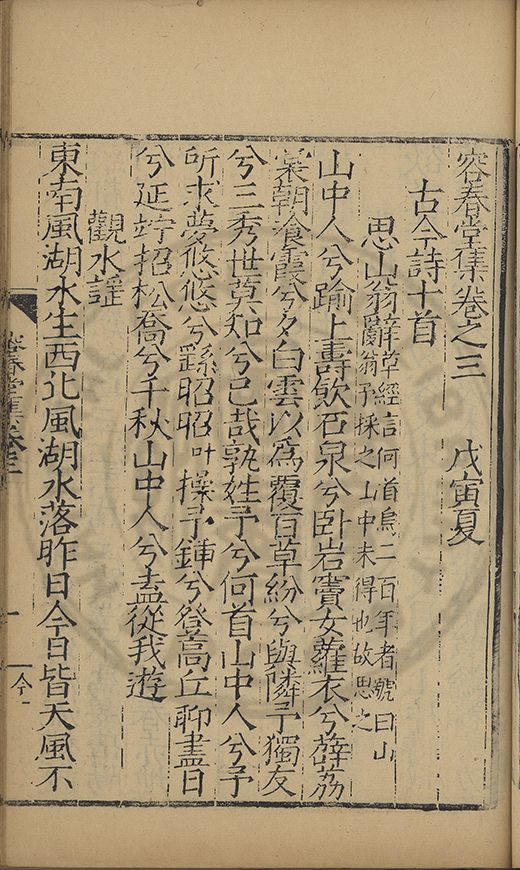 容春堂集卷之三　戊寅夏
古今詩十首
思山翁辭草經言何首烏二百年者號曰山
翁予採之山中未得也故思之
山中人兮踰上壽飲石泉兮卧岩竇女蘿衣兮薜荔
裳朝飡霞兮夕白雲以爲覆百草紛兮與隣予獨友
兮三秀世莫知兮已哉孰姓予兮何首山中人兮予
所求夢悠悠兮繇昭昭叶操予鍤兮登蒿丘聊盡日
兮延竚招松喬兮千秋山中人兮盍從我遊
觀水謡
東南風湖水生西北風湖水落昨日今日皆天風不
容春堂集卷三
一
今一